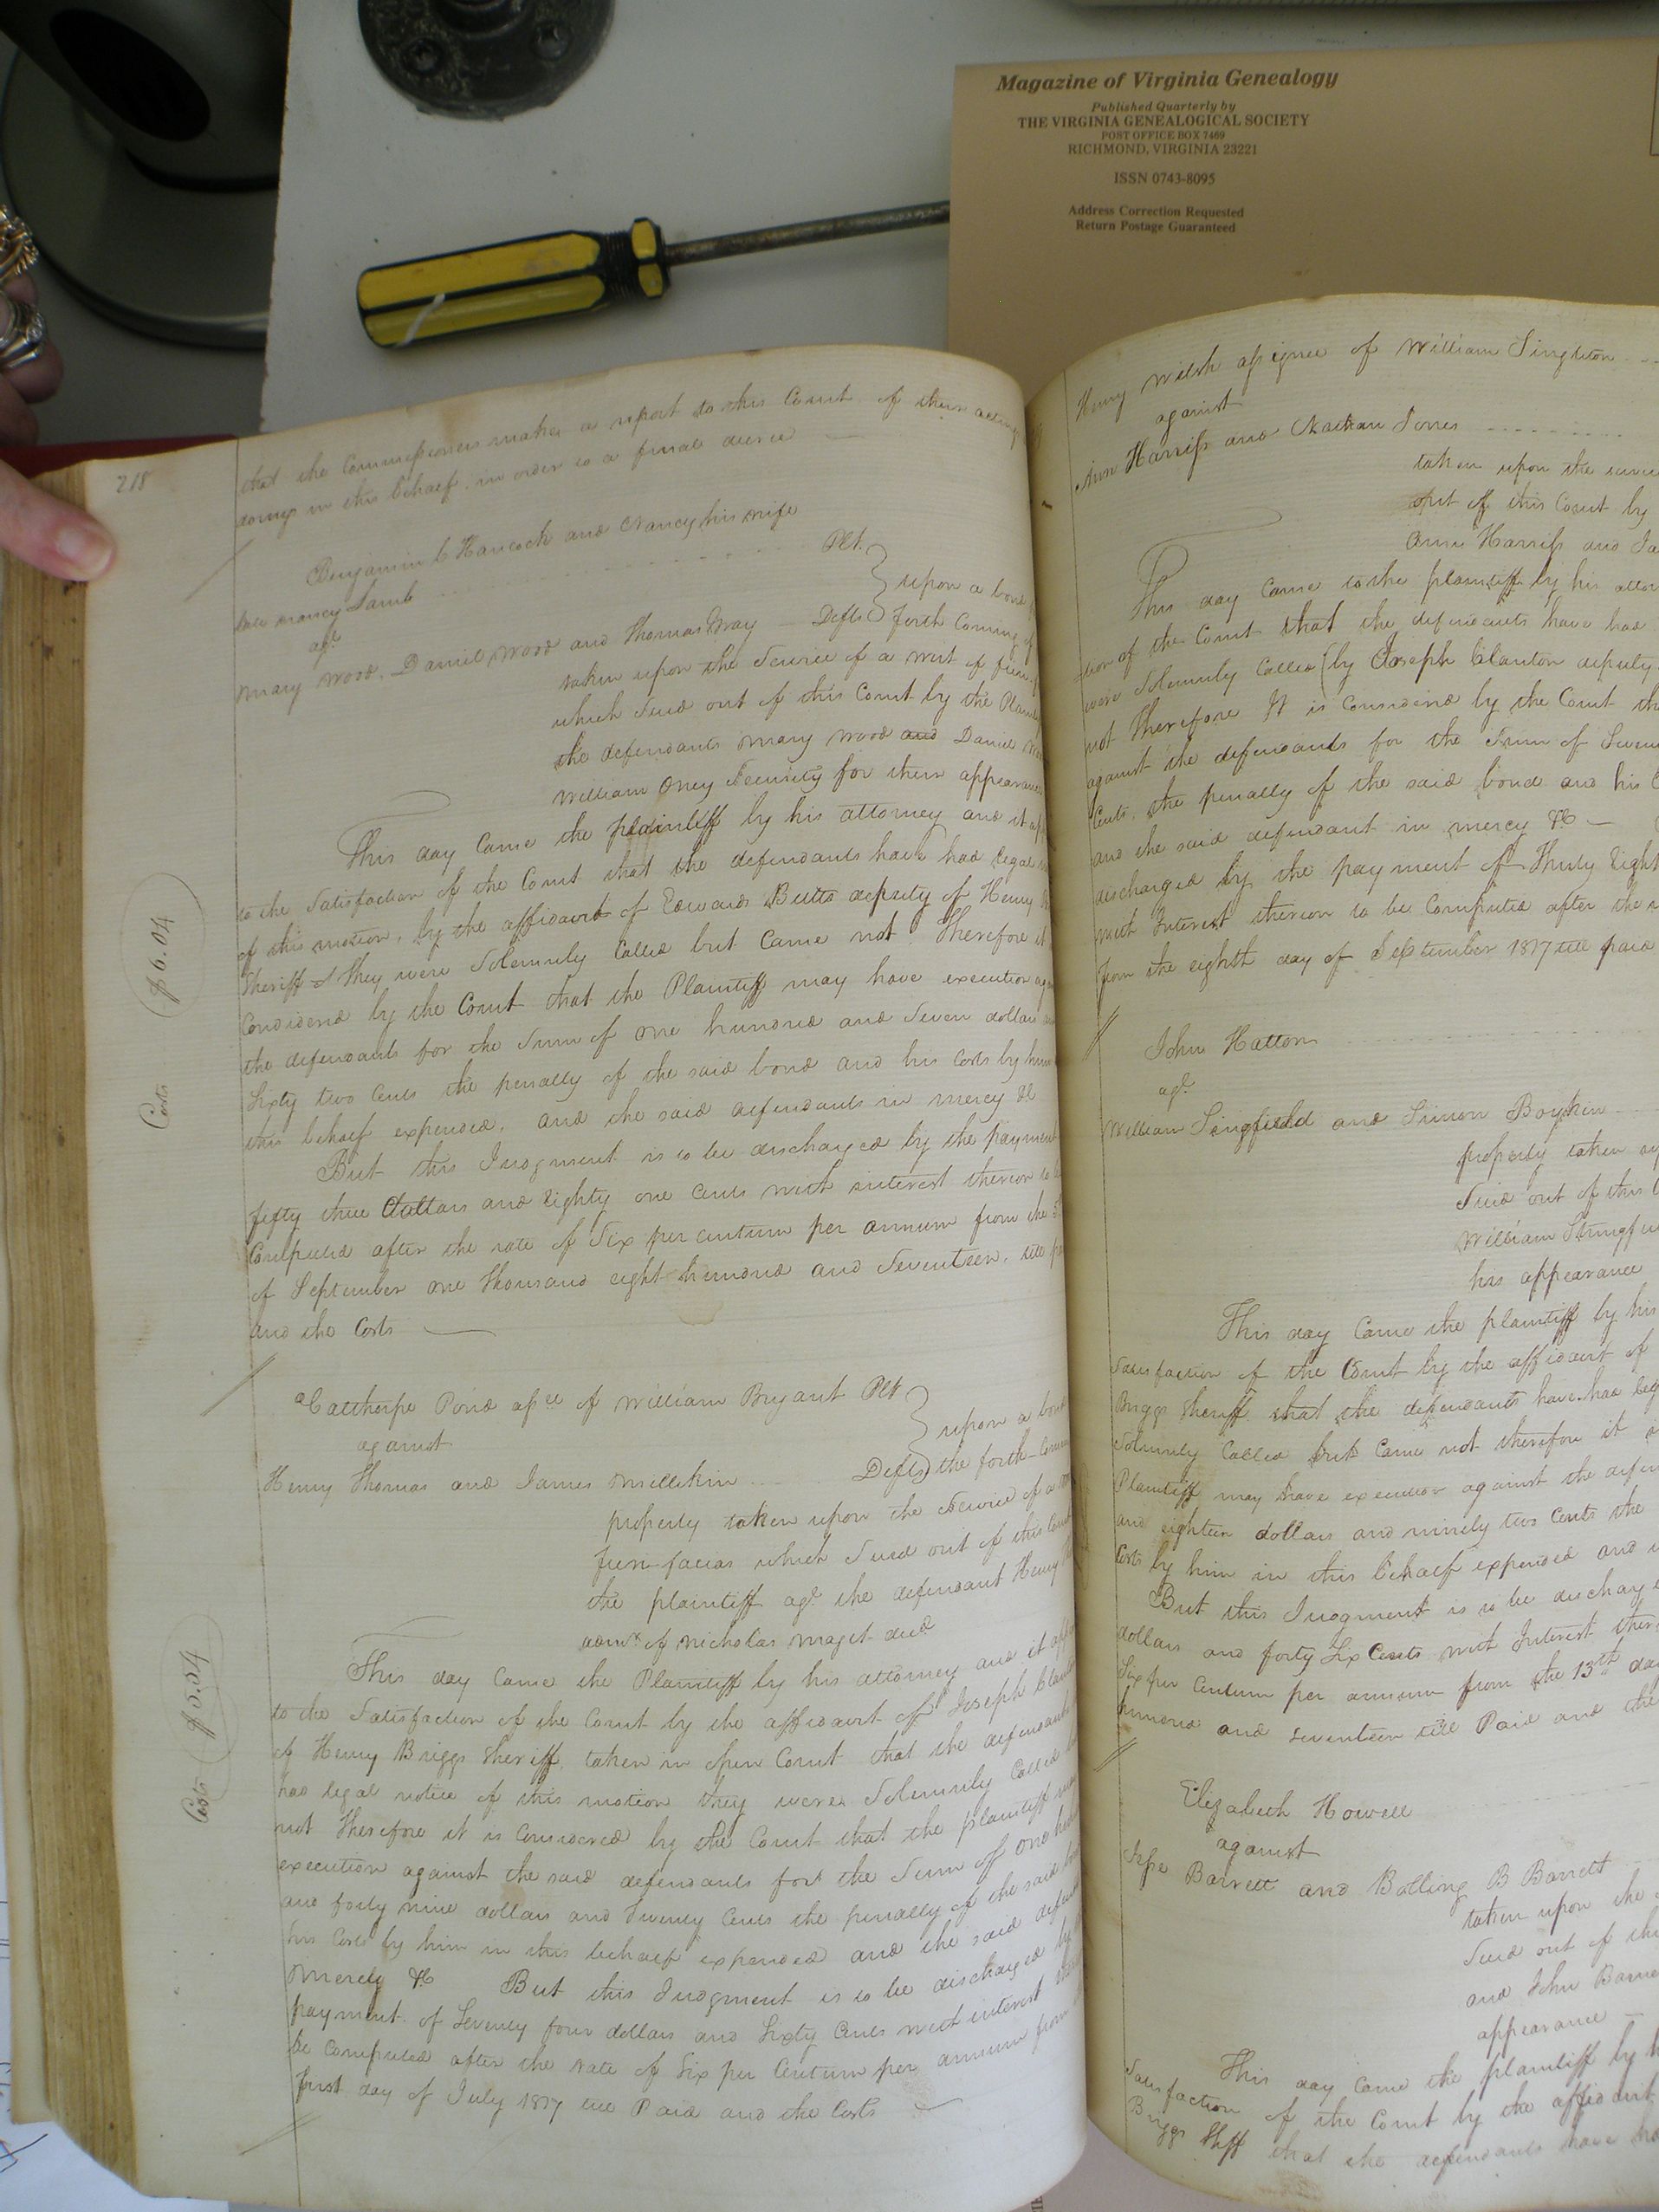 Magazine of Virginia Genealogy
Published Quarterly by
THE VIRGINIA GENEALOGICAL SOCIETY
POST OFFICE BOX 7469
RICHMOND, VIRGINIA 23221
ISSN 0743-8095
Address Correction Requested
Return Postage Guaranteed
218
that the Commissioners make a report to this Court of their
doings in this behalf in order to a final decree
Benjamin C Hancock and Nancy his wife
late Nancy Lamb Plt.
agt.
Mary Wood, Daniel Wood and Thomas Gray Defts
upon a bond
forth Coming
taken upon the Service of a writ of
which Sued out of this Court by the
the defendants Mary Wood and Daniel
William Oney Security for their appearance
This day Came the plaintiff by his attorney and it
to the Satisfaction of the Court that the defendants have had legal
of this motion, by the affidavit of Edwards Butts deputy of Henry
Sheriff & they were Solemnly Called but Came not. Therefore it
Considered by the Court that the Plaintiff may have execution
the defendants for the Sum of one hundred and Seven dollars
Sixty two Cents the penalty of the said bond and his Costs by him
this behalf expended, and the said defendants in mercy &c
Costs $6.04
But this Judgment is to be discharged by the payment
fifty three Dollars and Eighty one Cents with interest thereon to
Computed after the rate of Six per centum per annum from the
of September one thousand eight hundred and Seventeen, till
and the Costs
Calthorpe Pond assee of William Bryant Plt
against
Henry Thomas and James Millikin Defts
upon a bond
the forth-Coming
property taken upon the Service of a
fieri facias which Sued out of this Court
the plaintiff agt. the defendant Henry
admr. of Nicholas Maget decd
This day Came the Plaintiff by his attorney and it
to the Satisfaction of the Court by the affidavit of Joseph
of Henry Briggs Sheriff, taken in open Court that the defendants
had legal notice of this motion they were Solemnly Called
not Therefore it is Considered by the Court that the plaintiff
execution against the said defendants for the Sum of one
and forty nine dollars and Twenty Cents the penalty of the said
his Costs by him in this behalf expended and the said
Mercy &c But this Judgment is to be discharged by
payment of Seventy four dollars and Sixty Cents with interest
be Computed after the rate of Six per Centum per annum from
first day of July 1817 till Paid and the Costs
Costs $5.54
Henry Welsh assignee of William Singleton
against
Ann Harriss and Nathan Jones
taken upon the
out of this Court by
Ann Harriss and
This day Came to the plaintiff by his
tion of the Court that the defendants have had
were Solemnly Called (by Joseph Clanton deputy
not Therefore It is Considered by the Court
against the defendants for the Sum of
Cents, the penalty of the said bond and his
and the said defendant in mercy &c
discharged by the payment of Thirty Eight
with Interest thereon to be Computed after the
from the eighth day of September 1817 till paid
John Hatton
agt.
William Stringfield and Simon Boykin
property taken
Sued out of this
William
his appearance
This day Came the plaintiff by his
Satisfaction of the Court by the affidavit of
Briggs Sheriff that the defendants have had
Solemnly Called but Came not therefore it
Plaintiff may have execution against the
and eighteen dollars and ninety two Cents the
Costs by him in this behalf expended and
But this Judgment is to be
dollars and forty Six Cents with Interest
Six per Centum per annum from the 13th day
hundred and Seventeen till Paid and the
Elizabeth Howell
against
Jesse Barrett and Bolling B Barrett
taken upon the
Sued out of
and John
appearance
This day Came the plaintiff by
Satisfaction of the Court by the affidavit
Briggs Shff that the defendants have